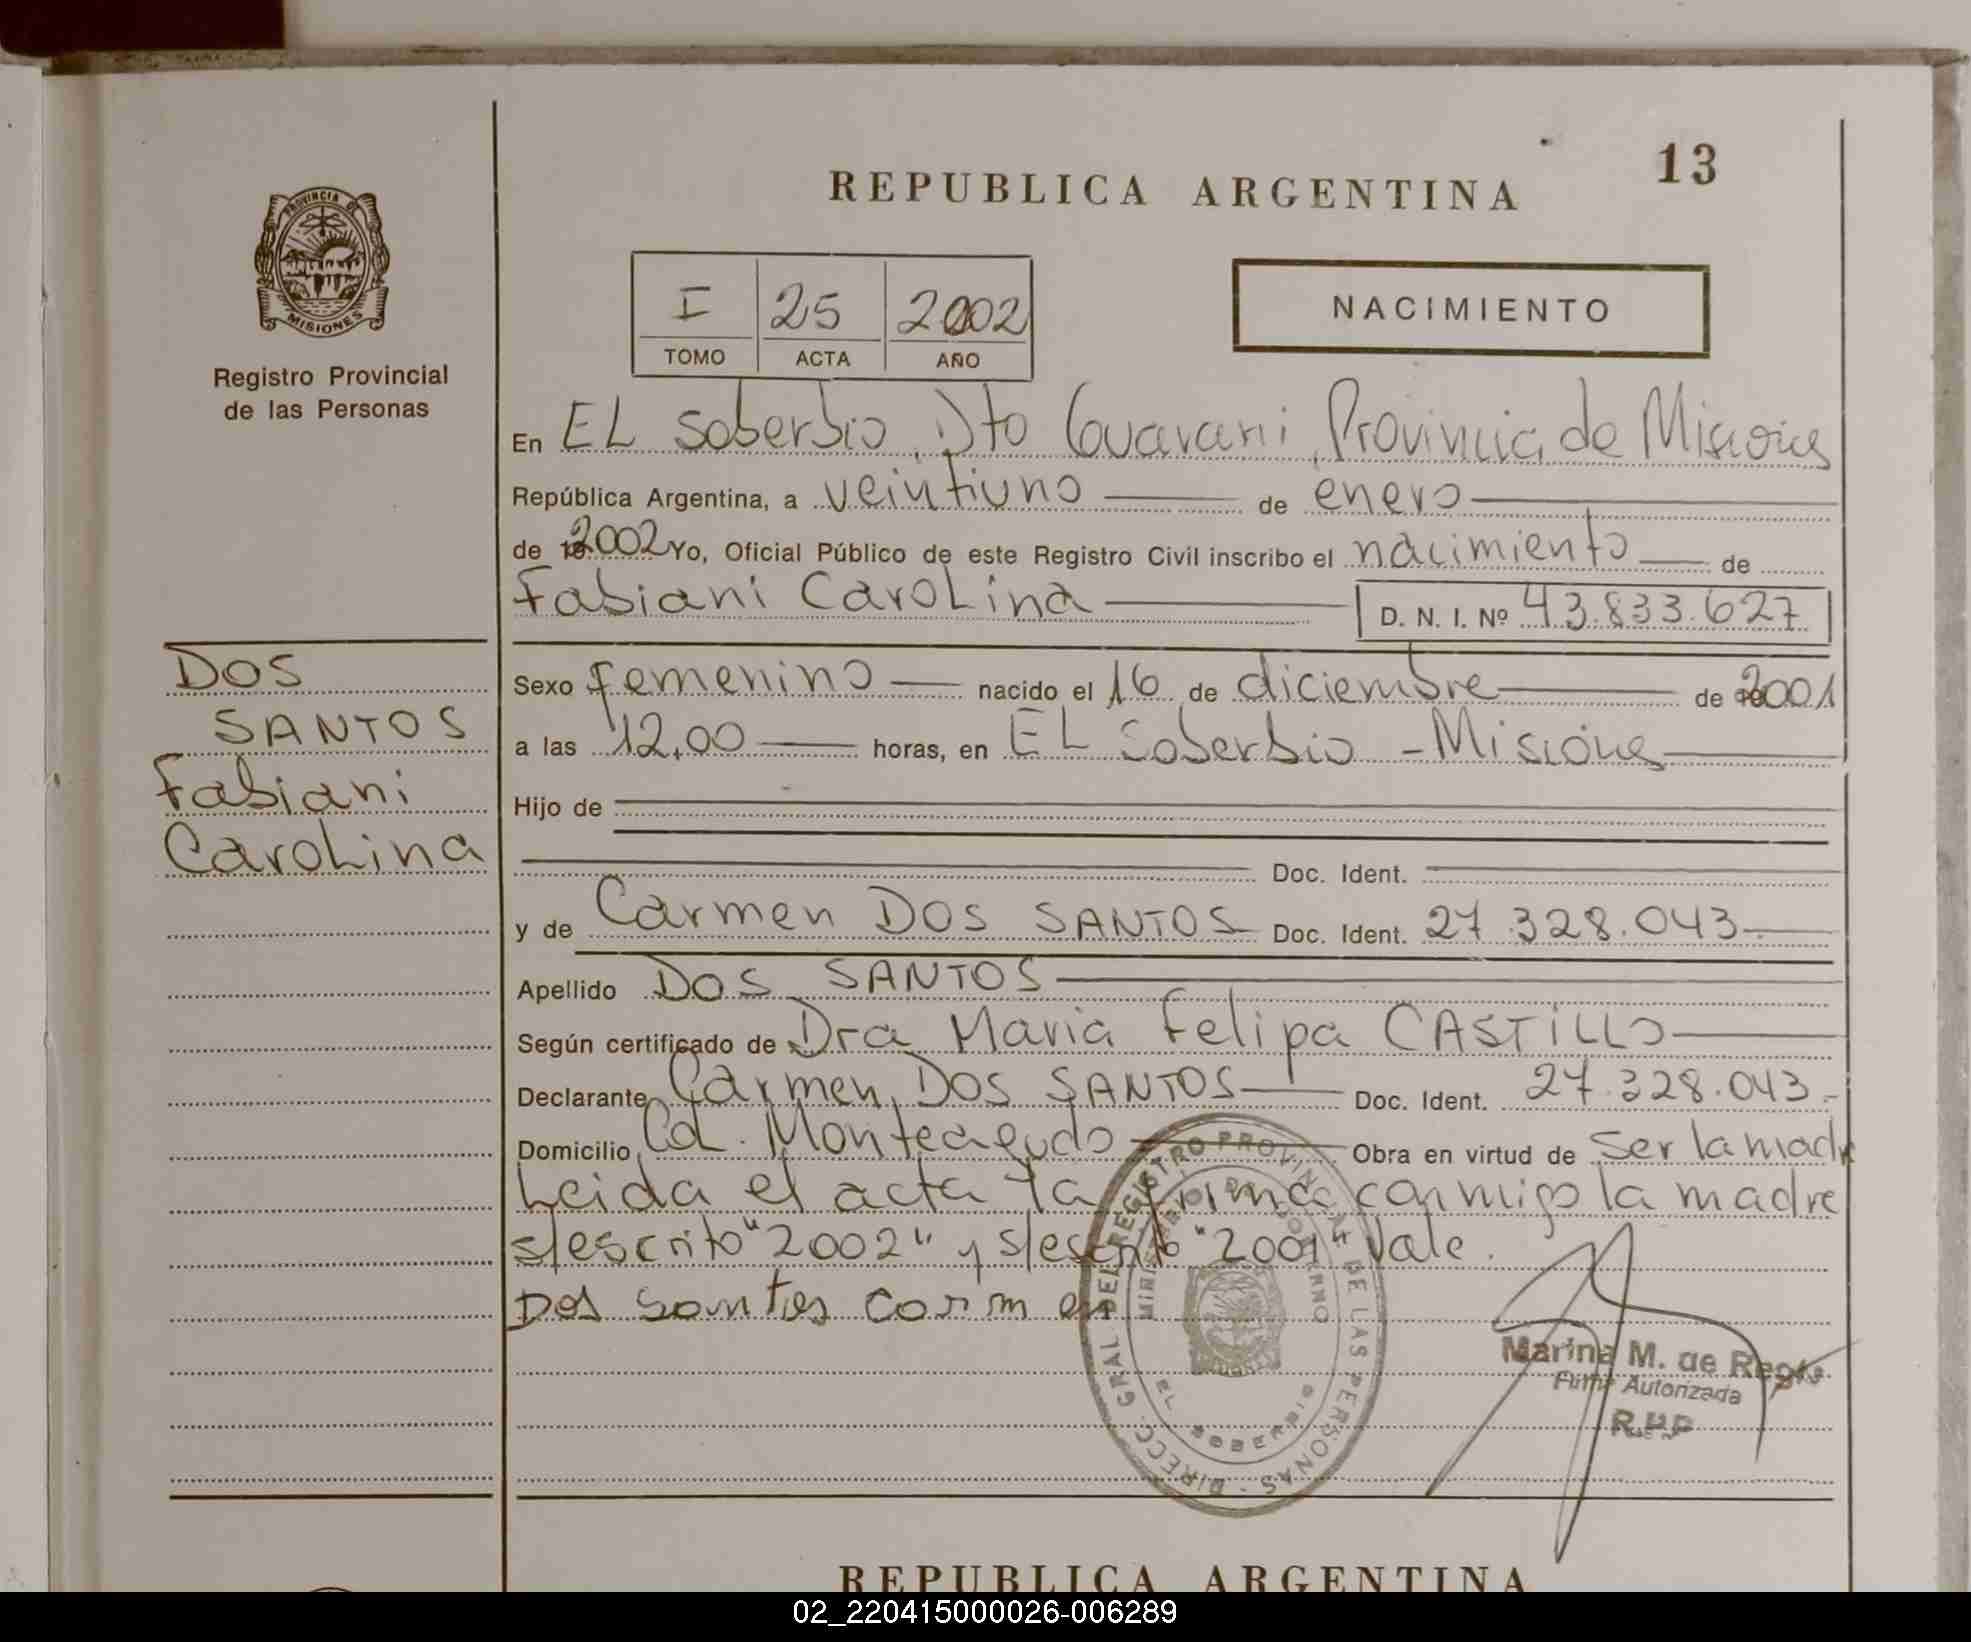 13
REPUBLICA ARGENTINA
PROVINCIA DE
MISIONES
Registro Provincial
de las Personas
I 25 2002
TOMO ACTA AÑO
NACIMIENTO
En EL Soberbio, Dto Guarani, Provincia de Misiones
República Argentina, a veintiuno de enero
de 2002 Yo, Oficial Público de este Registro Civil inscribo el nacimiento de
Fabiani Carolina D. N. I. Nº 43.833.627
DOS
SANTOS
Fabiani
Carolina
Sexo femenino nacido el 16 de diciembre de 2001
a las 12,00 horas, en EL Soberbio - Misiones
Hijo de
Doc. Ident.
y de Carmen DOS SANTOS Doc. Ident. 27.328.043
Apellido DOS SANTOS
Según certificado de Dra Maria Felipa CASTILLO
Declarante Carmen DOS SANTOS Doc. Ident. 27.328.043.-
Domicilio Col. Monteagudo Obra en virtud de Ser la madre
Leida el acta la firma conmigo la madre
s/escrito "2002" y s/escrito "2001" Vale.
Dos Santos Carmen
DIRECC. GRAL DEL REGISTRO PROVINCIAL DE LAS PERSONAS
MINISTERIO DE GOBIERNO
EL SOBERBIO
Marina M. de
Firma Autorizada
REPUBLICA ARGENTINA
02_220415000026-006289